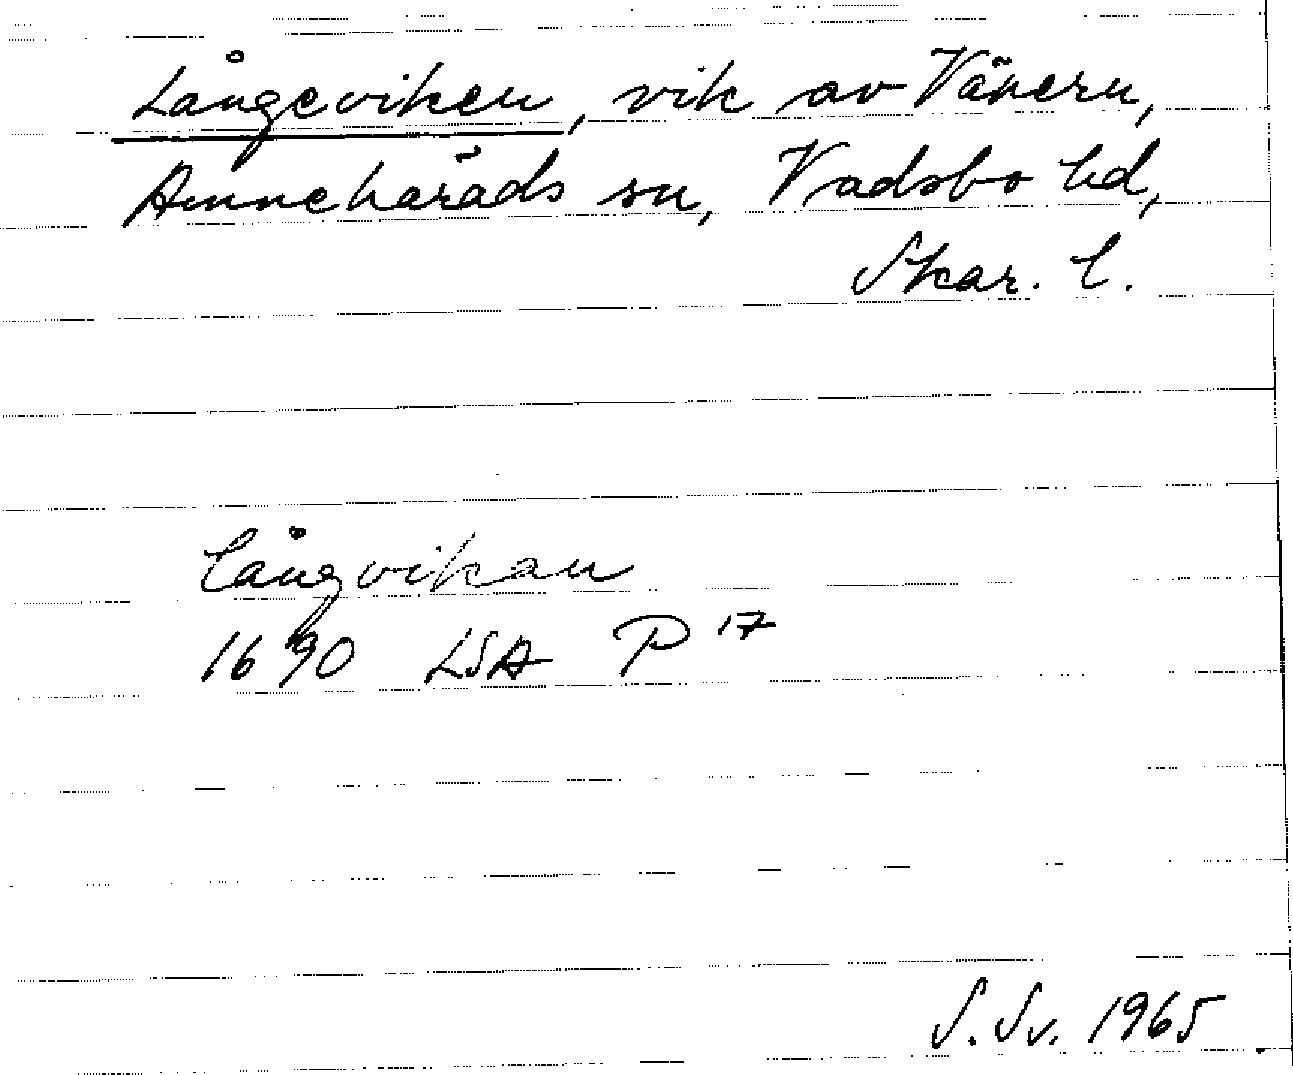 Långeviken, vik av Vänern,
Amnehärads sn, Vadsbo hd,
Skar. l.
Långvikan
1690 LSA P 17
S. Sv. 1965